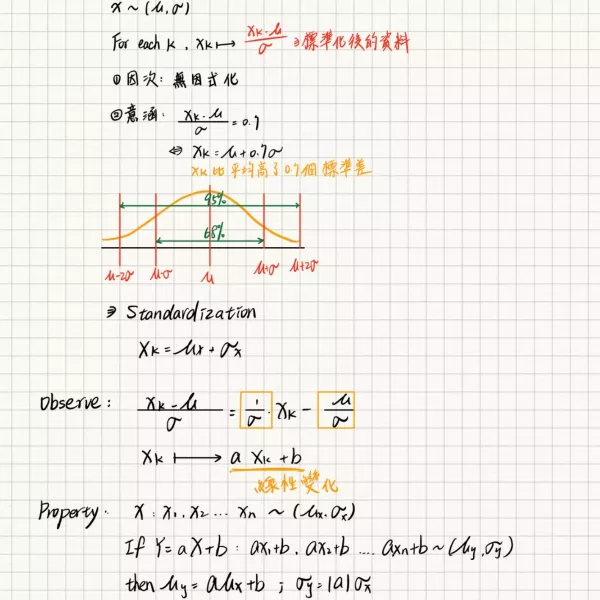 X ~ (μ, σ)
For each k , xk ↦ (xk - μ)/σ ⇒ 標準化後的資料
① 因次: 無因式化
② 意涵: (xk - μ)/σ = 0.7
⇔ xk = μ + 0.7σ
xk 比平均高了 0.7 個標準差
95%
68%
μ-2σ μ-σ μ μ+σ μ+2σ
⇒ Standardization
xk = μx + σx
Observe : (xk - μ)/σ = 1/σ · xk - μ/σ
xk ↦ a xk + b
線性變化
Property . X : x1 , x2 ... xn ~ (μx, σx)
If Y = aX+b : ax1+b , ax2+b .... axn+b ~ (μy, σy)
then μy = aμx + b ; σy = |a| σx